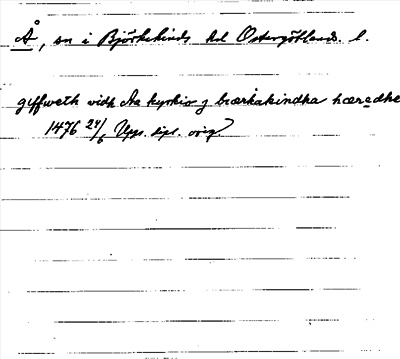 Å, sn i Björkekinds hd Östergötland. l.
giffweth vidh Aa kyrkio j biærkakindha hæradhe
1476 24/6 Upps. dipl. orig.